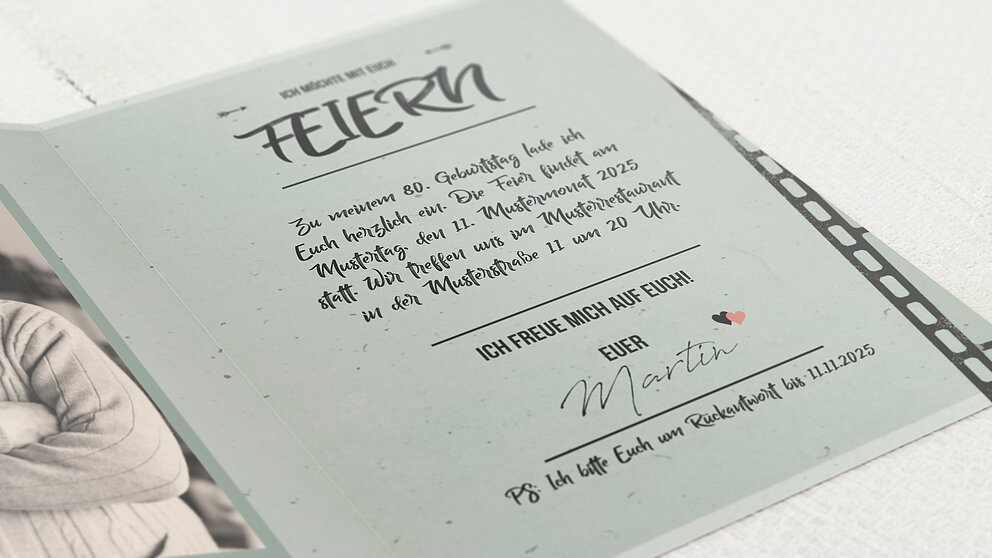 ICH MÖCHTE MIT EUCH
FEIERN
Zu meinem 80. Geburtstag lade ich
Euch herzlich ein. Die Feier findet am
Mustertag, den 11. Mustermonat 2025
statt. Wir treffen uns im Musterrestaurant
in der Musterstraße 11 um 20 Uhr.
ICH FREUE MICH AUF EUCH!
EUER
Martin
PS: Ich bitte Euch um Rückantwort bis 11.11.2025